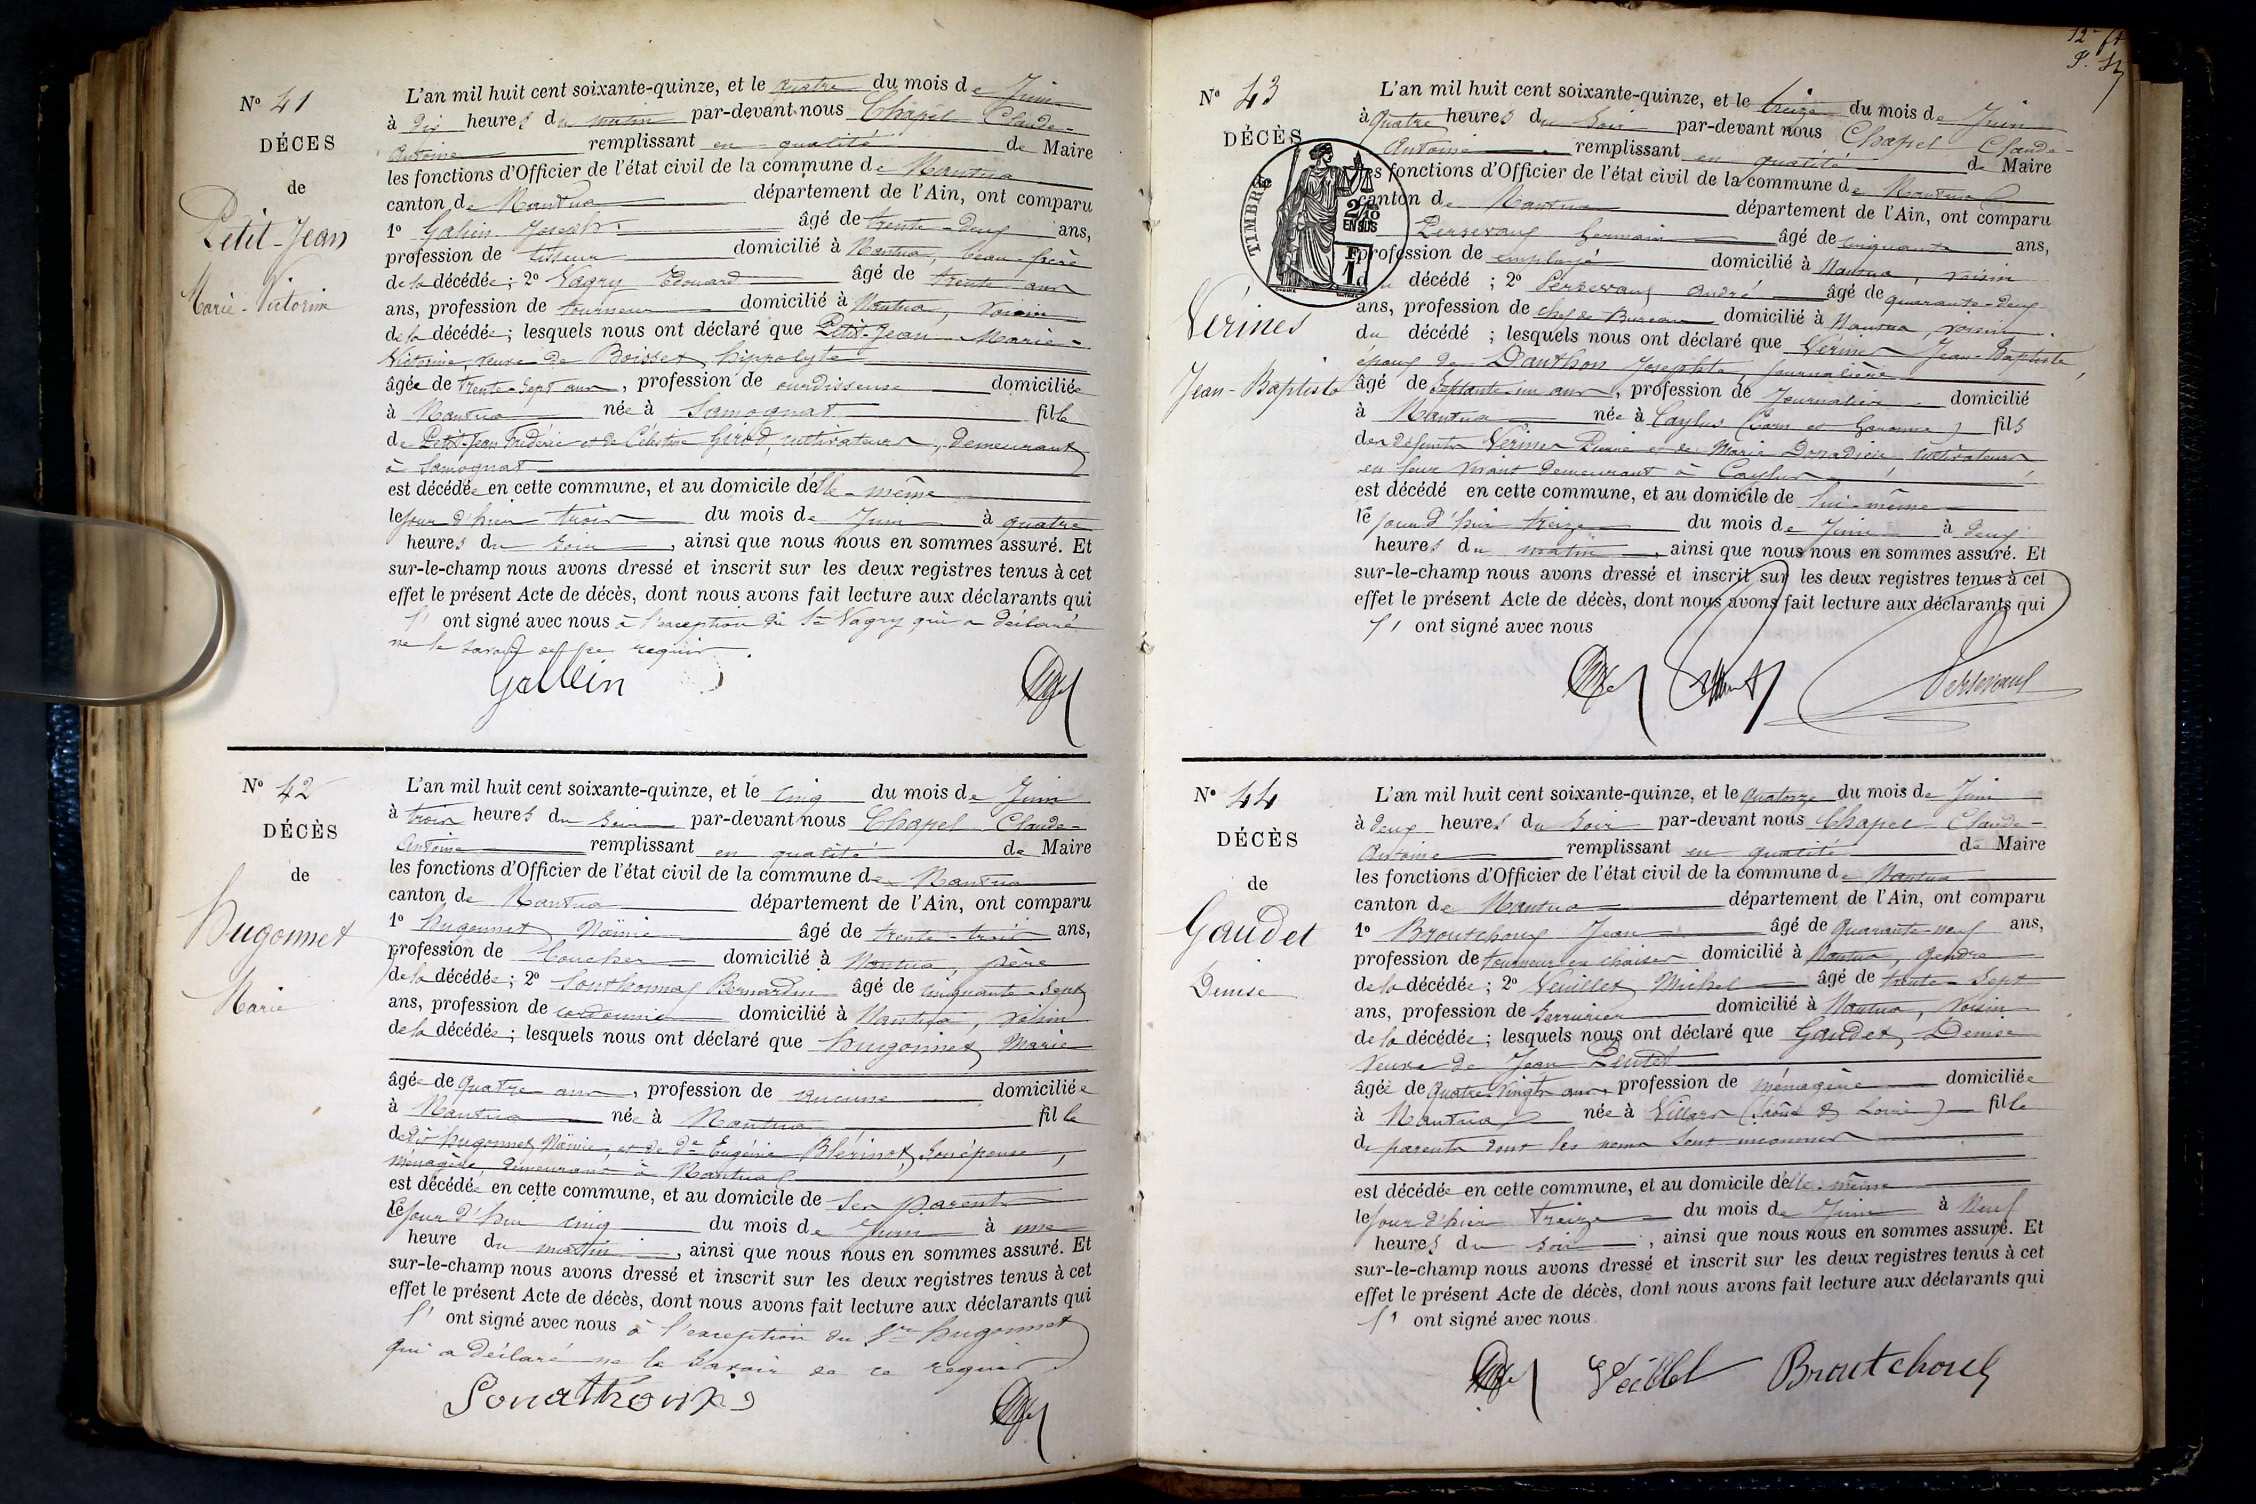 N° 41
DÉCÈS
de
Petit-Jean
Marie-Victorine
L'an mil huit cent soixante-quinze, et le quatre du mois de Juin
à dix heures du matin par-devant nous Chapel Claude-
Antoine remplissant en qualité de Maire
les fonctions d'Officier de l'état civil de la commune de Nantua
canton de Nantua département de l'Ain, ont comparu
1° Galien Joseph âgé de trente-deux ans,
profession de tisseur domicilié à Nantua, beau-frère
de la décédée; 2° Vagry Edouard âgé de trente ans
ans, profession de tourneur domicilié à Nantua, voisin
de la décédée; lesquels nous ont déclaré que Petit-Jean Marie-
Victorine, veuve de Boisset hippolyte
âgée de trente-sept ans, profession de ourdisseuse domiciliée
à Nantua née à Samognat fille
de Petit-Jean Frédéric et de Célestine Girod, cultivateurs, demeurant
à Samognat
est décédée en cette commune, et au domicile d'elle-même
le jour d'hier trois du mois de Juin à quatre
heures du soir, ainsi que nous nous en sommes assuré. Et
sur-le-champ nous avons dressé et inscrit sur les deux registres tenus à cet
effet le présent Acte de décès, dont nous avons fait lecture aux déclarants qui
l' ont signé avec nous à l'exception du Sr Vagry qui a déclaré
ne le savoir de ce requis.
Gallein
N° 42
DÉCÈS
de
hugonnet
Marie
L'an mil huit cent soixante-quinze, et le cinq du mois de Juin
à trois heures du soir par-devant nous Chapel Claude-
Antoine remplissant en qualité de Maire
les fonctions d'Officier de l'état civil de la commune de Nantua
canton de Nantua département de l'Ain, ont comparu
1° hugonnet âgé de trente-trois ans,
profession de domicilié à Nantua, père
de la décédée; 2° Sonthonnax Bernardin âgé de cinquante-sept
ans, profession de cordonnier domicilié à Nantua, voisin
de la décédée; lesquels nous ont déclaré que hugonnet Marie
âgée de quatre ans, profession de aucune domiciliée
à Nantua née à Nantua fille
de hugonnet et de de Eugénie Blérinot, son épouse,
ménagère, demeurant à Nantua
est décédée en cette commune, et au domicile de ses parents
le jour d'hui cinq du mois de Juin à une
heure du matin, ainsi que nous nous en sommes assuré. Et
sur-le-champ nous avons dressé et inscrit sur les deux registres tenus à cet
effet le présent Acte de décès, dont nous avons fait lecture aux déclarants qui
l' ont signé avec nous à l'exception du Sr hugonnet
qui a déclaré ne le savoir de ce requis
Sonathonax
N° 43
DÉCÈS
de
TIMBRE
2/10
EN SUS
Vérines
Jean-Baptiste
L'an mil huit cent soixante-quinze, et le treize du mois de Juin
à quatre heures du soir par-devant nous Chapel Claude-
Antoine remplissant en qualité de Maire
les fonctions d'Officier de l'état civil de la commune de Nantua
canton de Nantua département de l'Ain, ont comparu
Persevaux Germain âgé de cinquante ans,
profession de employé domicilié à Nantua, voisin
décédé; 2° Persevaux André âgé de quarante-deux
ans, profession de chef de Bureau domicilié à Nantua, voisin
du décédé; lesquels nous ont déclaré que Vérines Jean-Baptiste,
époux de Danthon Josephte, journalière
âgé de septante-un ans, profession de Journalier domicilié
à Nantua née à Caylus (Tarn et Garonne) fils
des défunts Vérines Pierre et de Marie Doradieu cultivateurs
en leur vivant demeurant à Caylus
est décédé en cette commune, et au domicile de lui-même
le jour d'hui treize du mois de Juin à deux
heures du matin, ainsi que nous nous en sommes assuré. Et
sur-le-champ nous avons dressé et inscrit sur les deux registres tenus à cet
effet le présent Acte de décès, dont nous avons fait lecture aux déclarants qui
l' ont signé avec nous
Persevaux
N° 44
DÉCÈS
de
Gaudet
Denise
L'an mil huit cent soixante-quinze, et le quatorze du mois de Juin
à deux heures du soir par-devant nous Chapel Claude-
Antoine remplissant en qualité de Maire
les fonctions d'Officier de l'état civil de la commune de Nantua
canton de Nantua département de l'Ain, ont comparu
1° Broutchoux Jean âgé de quarante-neuf ans,
profession de tourneur en chaises domicilié à Nantua, gendre
de la décédée; 2° Veuillet Michel âgé de trente-sept
ans, profession de serrurier domicilié à Nantua, voisin
de la décédée; lesquels nous ont déclaré que Gaudet Denise
veuve de Jean
âgée de quatre-vingts ans, profession de ménagère domiciliée
à Nantua née à Villars (Saône & Loire) fille
de parents dont les noms sont inconnus
est décédée en cette commune, et au domicile d'elle-même
le jour d'hier treize du mois de Juin à neuf
heures du soir, ainsi que nous nous en sommes assuré. Et
sur-le-champ nous avons dressé et inscrit sur les deux registres tenus à cet
effet le présent Acte de décès, dont nous avons fait lecture aux déclarants qui
l' ont signé avec nous
Broutchoux